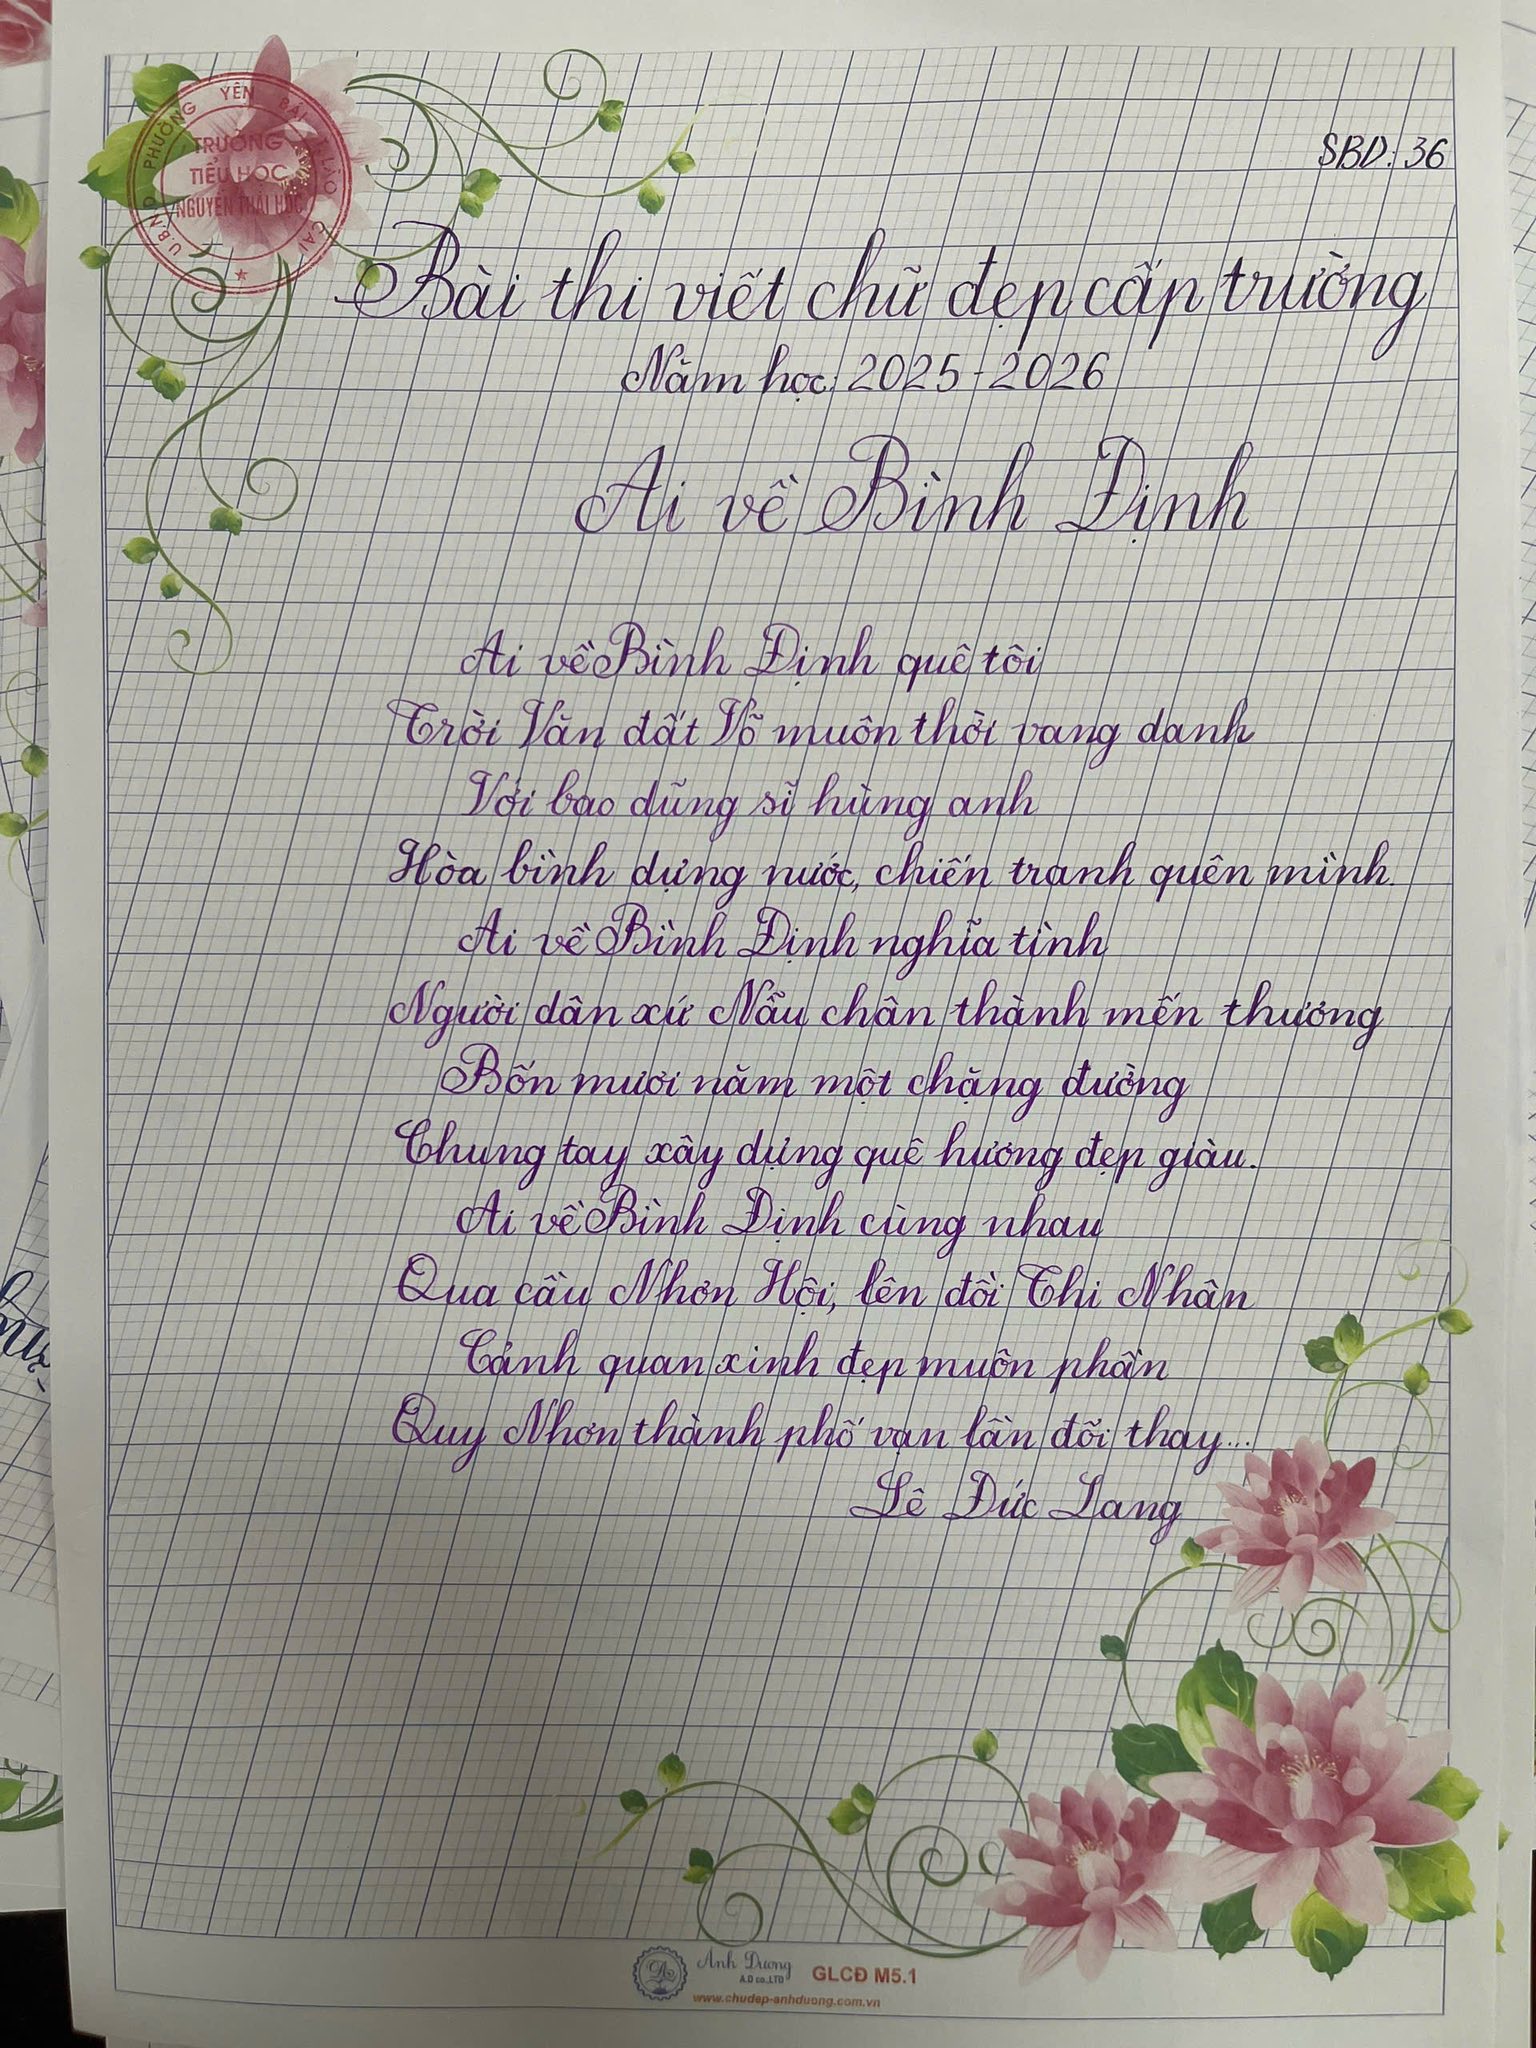 U.B.N.D PHƯỜNG YÊN BÁI T. LÀO CAI
TRƯỜNG
TIỂU HỌC
NGUYỄN THÁI HỌC
SBD: 36
Bài thi viết chữ đẹp cấp trường
Năm học: 2025 - 2026
Ai về Bình Định
Ai về Bình Định quê tôi
Trời Văn đất Võ muôn thời vang danh
Với bao dũng sĩ hùng anh
Hòa bình dựng nước, chiến tranh quên mình.
Ai về Bình Định nghĩa tình
Người dân xứ Nẫu chân thành mến thương
Bốn mươi năm một chặng đường
Chung tay xây dựng quê hương đẹp giàu.
Ai về Bình Định cùng nhau
Qua cầu Nhơn Hội, lên đồi Thi Nhân
Cảnh quan xinh đẹp muôn phần
Quy Nhơn thành phố vạn lần đổi thay...
Lê Đức Lang
Ánh Dương
A.D co.,LTD
GLCĐ M5.1
www.chudep-anhduong.com.vn